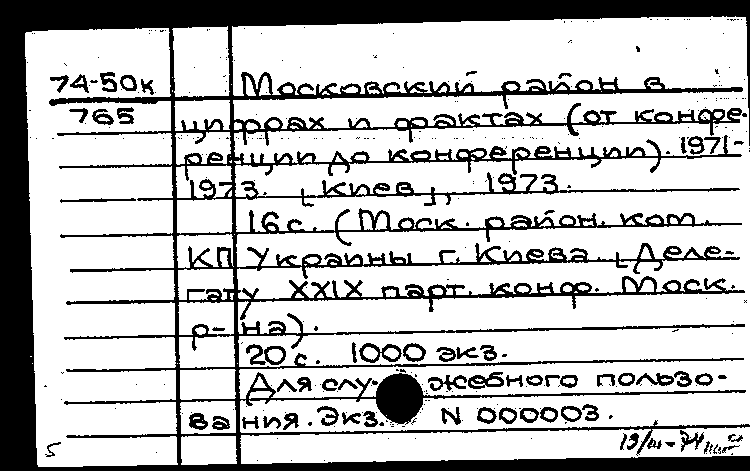 74-50к Московский район в
765 цифрах и фактах (от конфе-
ренции до конференции). 1971-
1973. [Киев], 1973.
16 с. (Моск. район. ком.
КП Украины г. Киева. [Деле-
гату XXIX парт. конф. Моск.
р-на).
20 с. 1000 экз.
Для служебного пользо-
вания. Экз. N 000003.
5